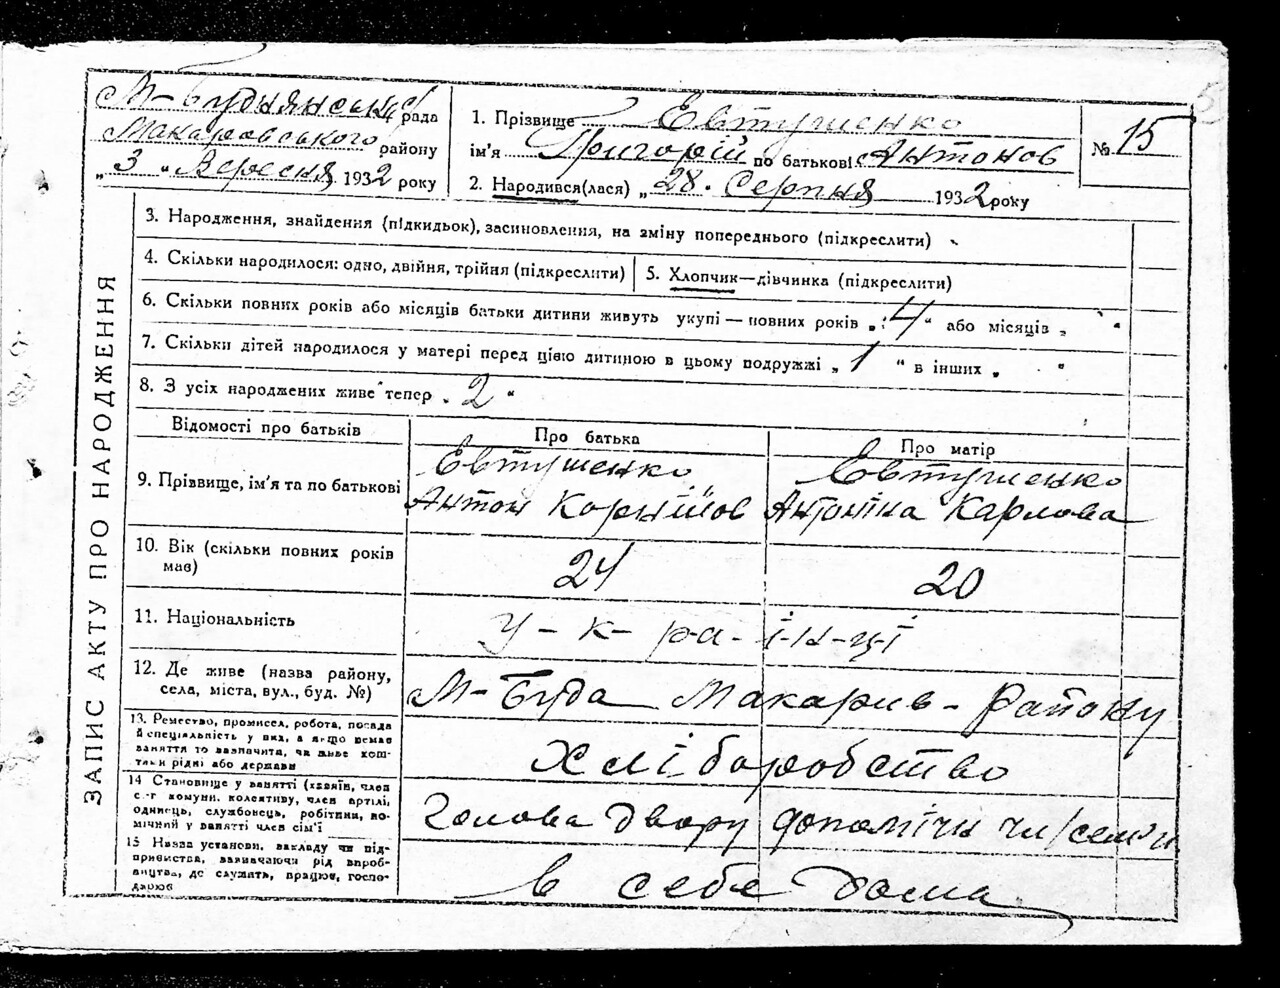 М-Буднянська рада
Макаровського району
„ 3 " Вересня 1932 року
1. Прізвище Евтушенко
ім'я Григорій по батькові Антонов
2. Народився(лася) „ 28. Серпня 1932 року
№ 15
ЗАПИС АКТУ ПРО НАРОДЖЕННЯ
3. Народження, знайдення (підкидьок), засиновлення, на зміну попереднього (підкреслити)
4. Скільки народилося: одно, двійня, трійня (підкреслити)
5. Хлопчик—дівчинка (підкреслити)
6. Скільки повних років або місяців батьки дитини живуть укупі — повних років „ 4 " або місяців „ "
7. Скільки дітей народилося у матері перед цією дитиною в цьому подружжі „ 1 " в інших „ "
8. З усіх народжених живе тепер „ 2 "
Відомості про батьків
Про батька
Про матір
9. Прізвище, ім'я та по батькові
Евтушенко
Антон Корнійов
Евтушенко
Антоніна Карлова
10. Вік (скільки повних років мав)
24
20
11. Національність
у-к-ра-ї-н-ці
12. Де живе (назва району,
села, міста, вул., буд. №)
М-Буда Макарив-Району
13. Ремество, промисел, робота, посада
й спеціяльність у них, а якщо немає
заняття то зазначити, чи живе кош-
тами рідні або держави
Хліборобство
14 Становище у занятті (хазяїн, член
с.-г комуни, колективу, член артілі,
одинець, службовець, робітник, по-
мічний у занятті член сім'ї
Голова двору допомічн чл/семи
15 Назва установи, закладу чи під-
приємства, зазначаючи рід вироб-
ництва, де служить, працює, госпо-
дарює
в себе дома